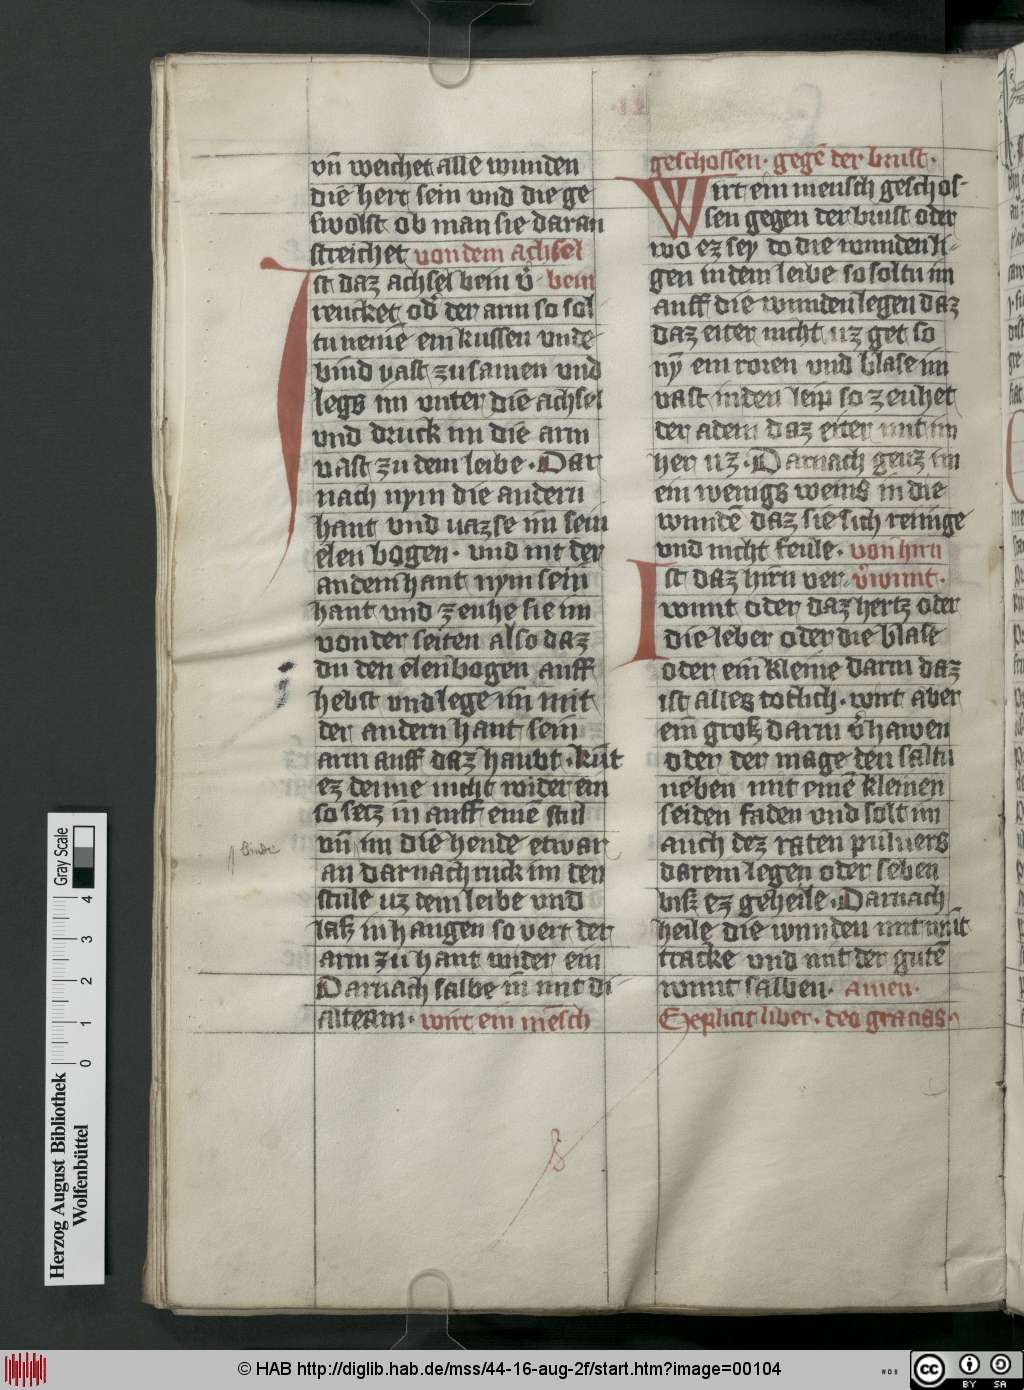 vn̄ weichet alle wunden
die hert sein vnd die ge
swolst ob man sie daran
streichet von dem achsel
Ist daz achsel bein v̾ bein
rencket od̾ der arm so sol
tu nemē ein kussen vnde
bind vast zu samen vnd
legs im vnter die achsel
vnd druck im die arm
vast zu dem leibe · Dar
nach nym die andern
hant vnd vazse im sein
elen bogen · vnd mit der
andern hant nym sein
hant vnd zeuhe sie im
von der seiten also daz
du den elenbogen auff
hebst vnd lege im mit
der andern hant sein
arm auff daz haubt · kūt
ez denne nicht wider ein
so setz in auff einē stul
vn̄ im die hende etwar
binde
an darnach ruck im den
stule uz dem leibe vnd
laß in hangen so vert der
arm zu hant wider ein
Darnach salbe in mit di
alteam · wirt ein mēsch
geschossen · gegē der brust ·
Wirt ein mensch geschos-
sen gegen der brust oder
wo ez sey do die wunden li-
gen in dem leibe so soltu im
auff die wunden legen daz
daz eiter nicht uz get so
nȳ ein roren vnd blase im
vast in den leip so zeuhet
der adem daz eiter mit im
her uz · Darnach geuz im
ein wenigs weins in die
wundē daz sie sich reinige
vnd nicht feule · von hirn
Ist daz hirn ver v̾wunt ·
wunt oder daz hertz oder
die leber oder die blase
oder ein kleine darm daz
ist alles totlich · wirt aber
ein groß darm v̾hawen
oder der mage den saltu
neben mit einē kleinen
seiden faden vnd solt im
auch dez raten puluers
darein legen oder seben
biß ez geheile · Darnach
heile die wunden mit
tracke vnd mit der gutē
wunt salben · amen ·
Explicit liber · deo gracias
Gray Scale
4
3
2
1
0
Herzog August Bibliothek
Wolfenbüttel
© HAB http://diglib.hab.de/mss/44-16-aug-2f/start.htm?image=00104
WDB
cc
BY SA